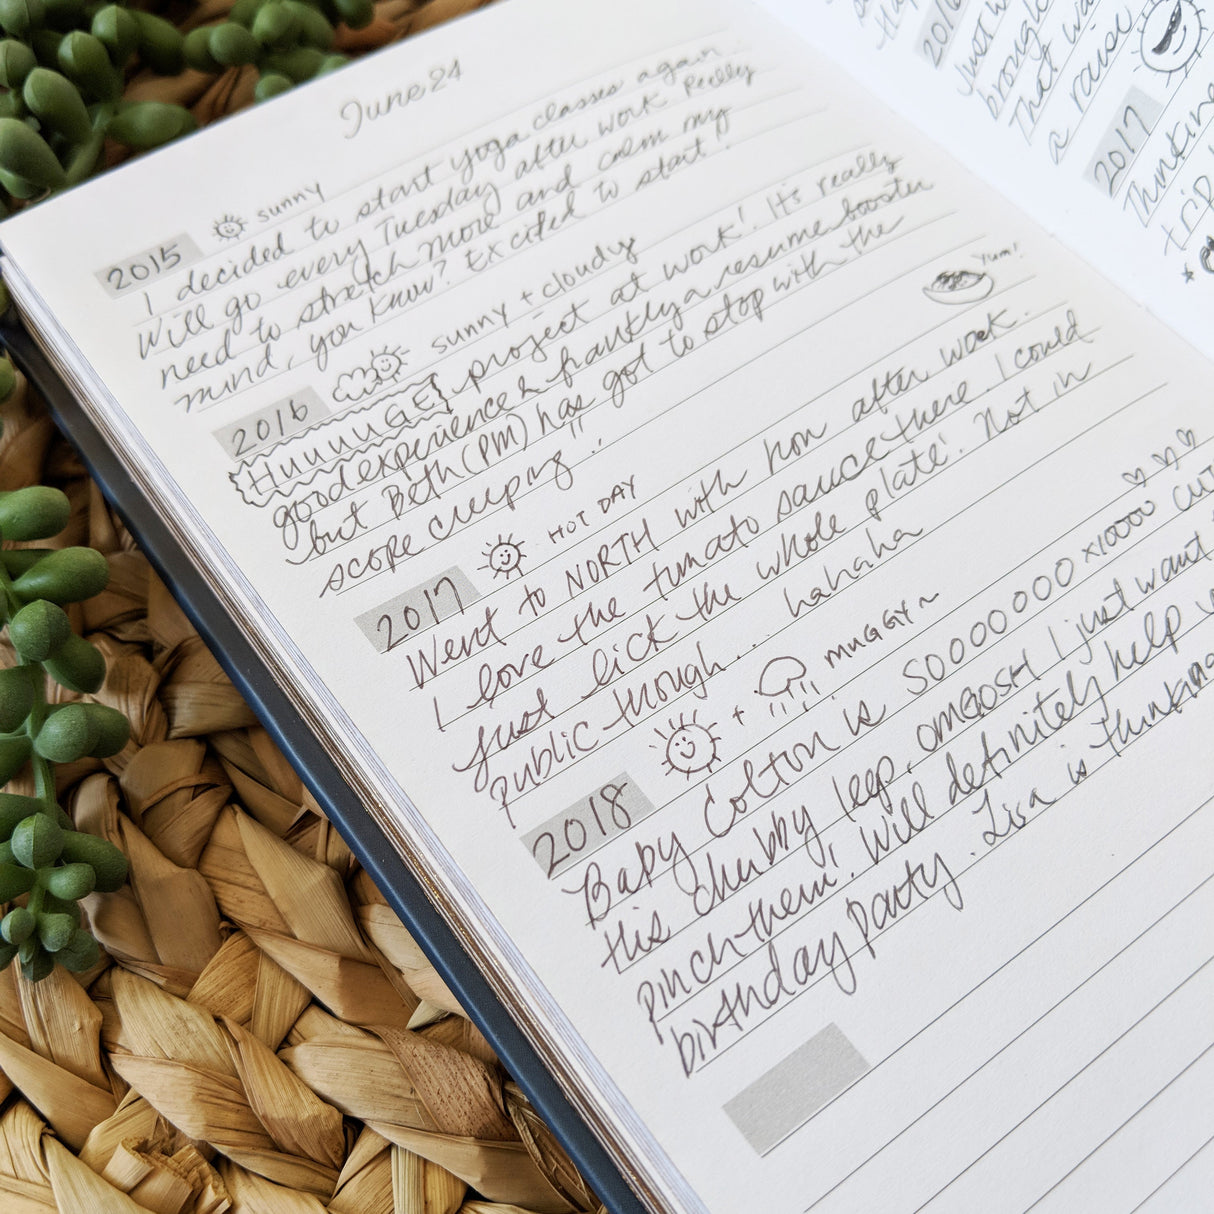 June 24
2015 sunny
I decided to start yoga classes again
Will go every Tuesday after work. Really
need to stretch more and calm my
mind, you know? Excited to start!
2016 sunny + cloudy
Huuuu GE project at work! It's really
good experience & frankly a resume booster
but Beth (PM) has got to stop with the
scope creeping!!
Yum!
2017 HOT DAY
Went to NORTH with hon after work.
I love the tomato sauce there. I could
just lick the whole plate! Not in
public though... hahaha
2018 + MUGGY~
Baby Colton is SOOOOOOOO x10000
His chubby legs, omgosh I just want
pinch them! Will definitely help
birthday party. Lisa is thinking
2016
Just
brought
That
a raise
2017
Thinking
trip